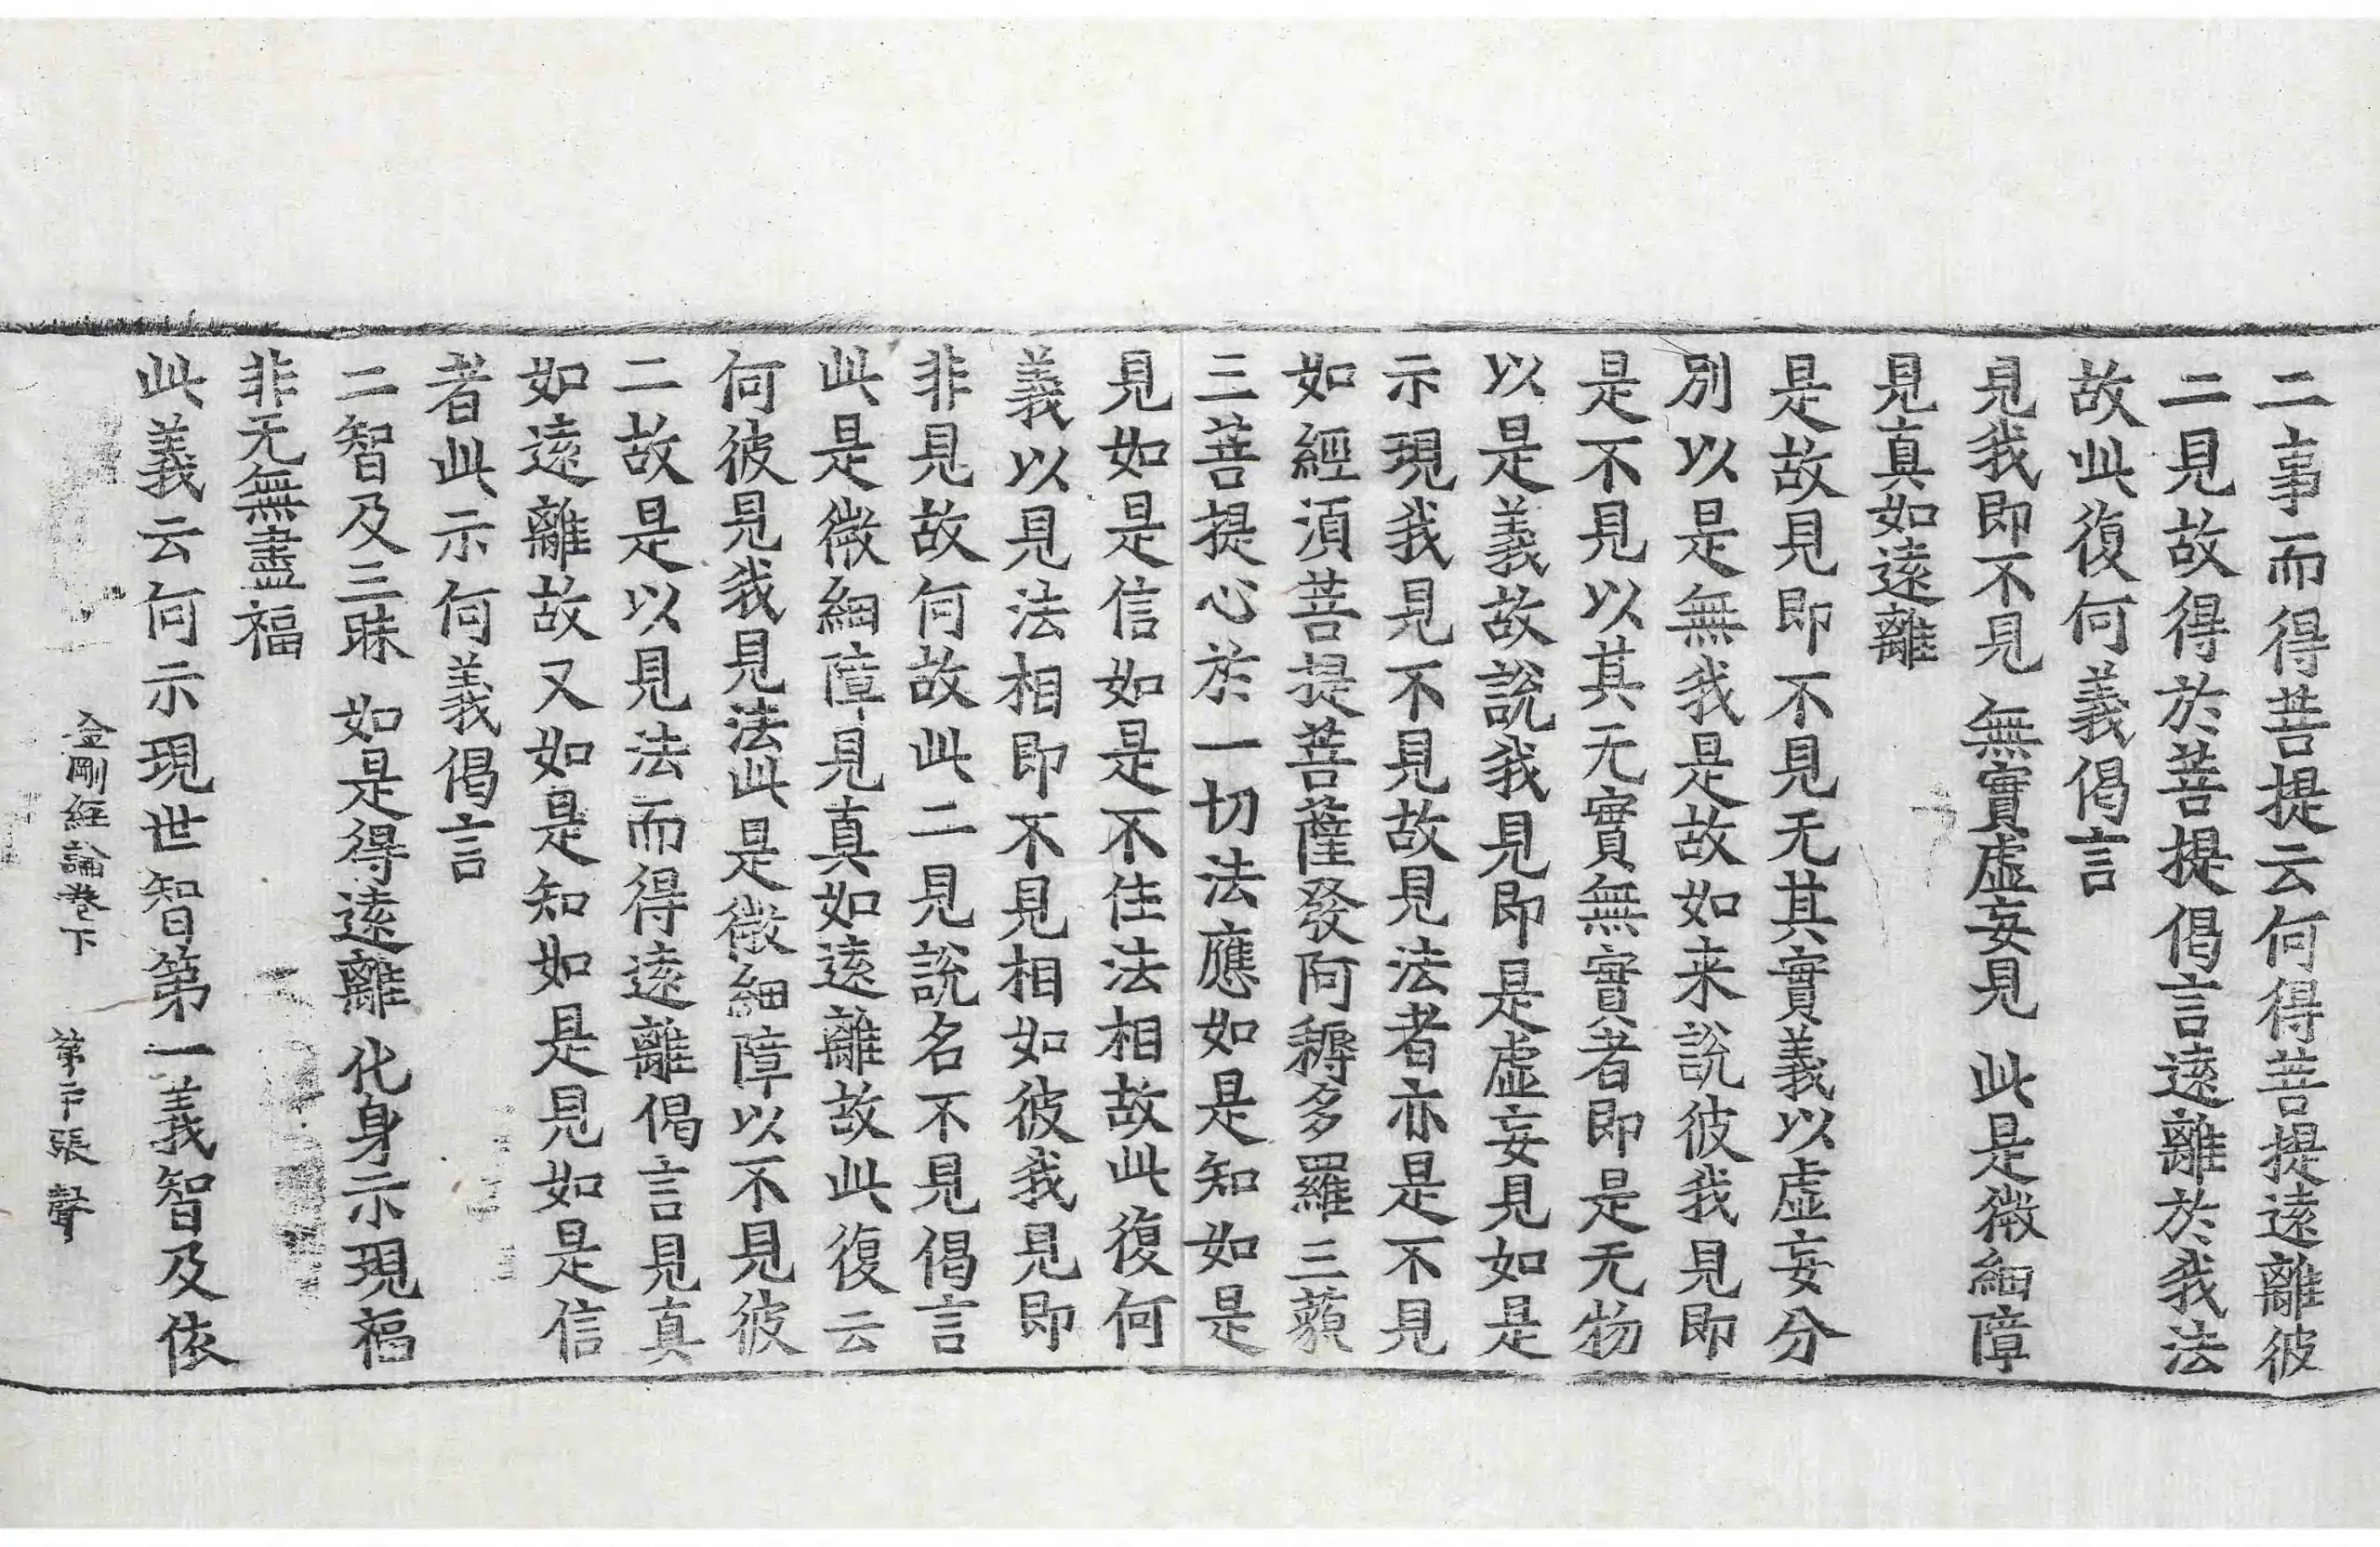 二事而得菩提云何得菩提遠離彼
二見故得於菩提偈言遠離於我法
故此復何義偈言
見我即不見 無實虛妄見 此是微細障
見真如遠離
是故見即不見无其實義以虛妄分
別以是無我是故如来說彼我見即
是不見以其无實無實者即是无物
以是義故說我見即是虛妄見如是
示現我見不見故見法者亦是不見
如經湏菩提菩薩發阿耨多羅三藐
三菩提心於一切法應如是知如是
見如是信如是不住法相故此復何
義以見法相即不見相如彼我見即
非見故何故此二見說名不見偈言
此是微細障見真如遠離故此復云
何彼見我見法此是微細障以不見彼
二故是以見法而得遠離偈言見真
如遠離故又如是知如是見如是信
者此示何義偈言
二智及三昧 如是得遠離 化身示現福
非无無盡福
此義云何示現世智第一義智及依
金剛經論卷下 第二十張 聲